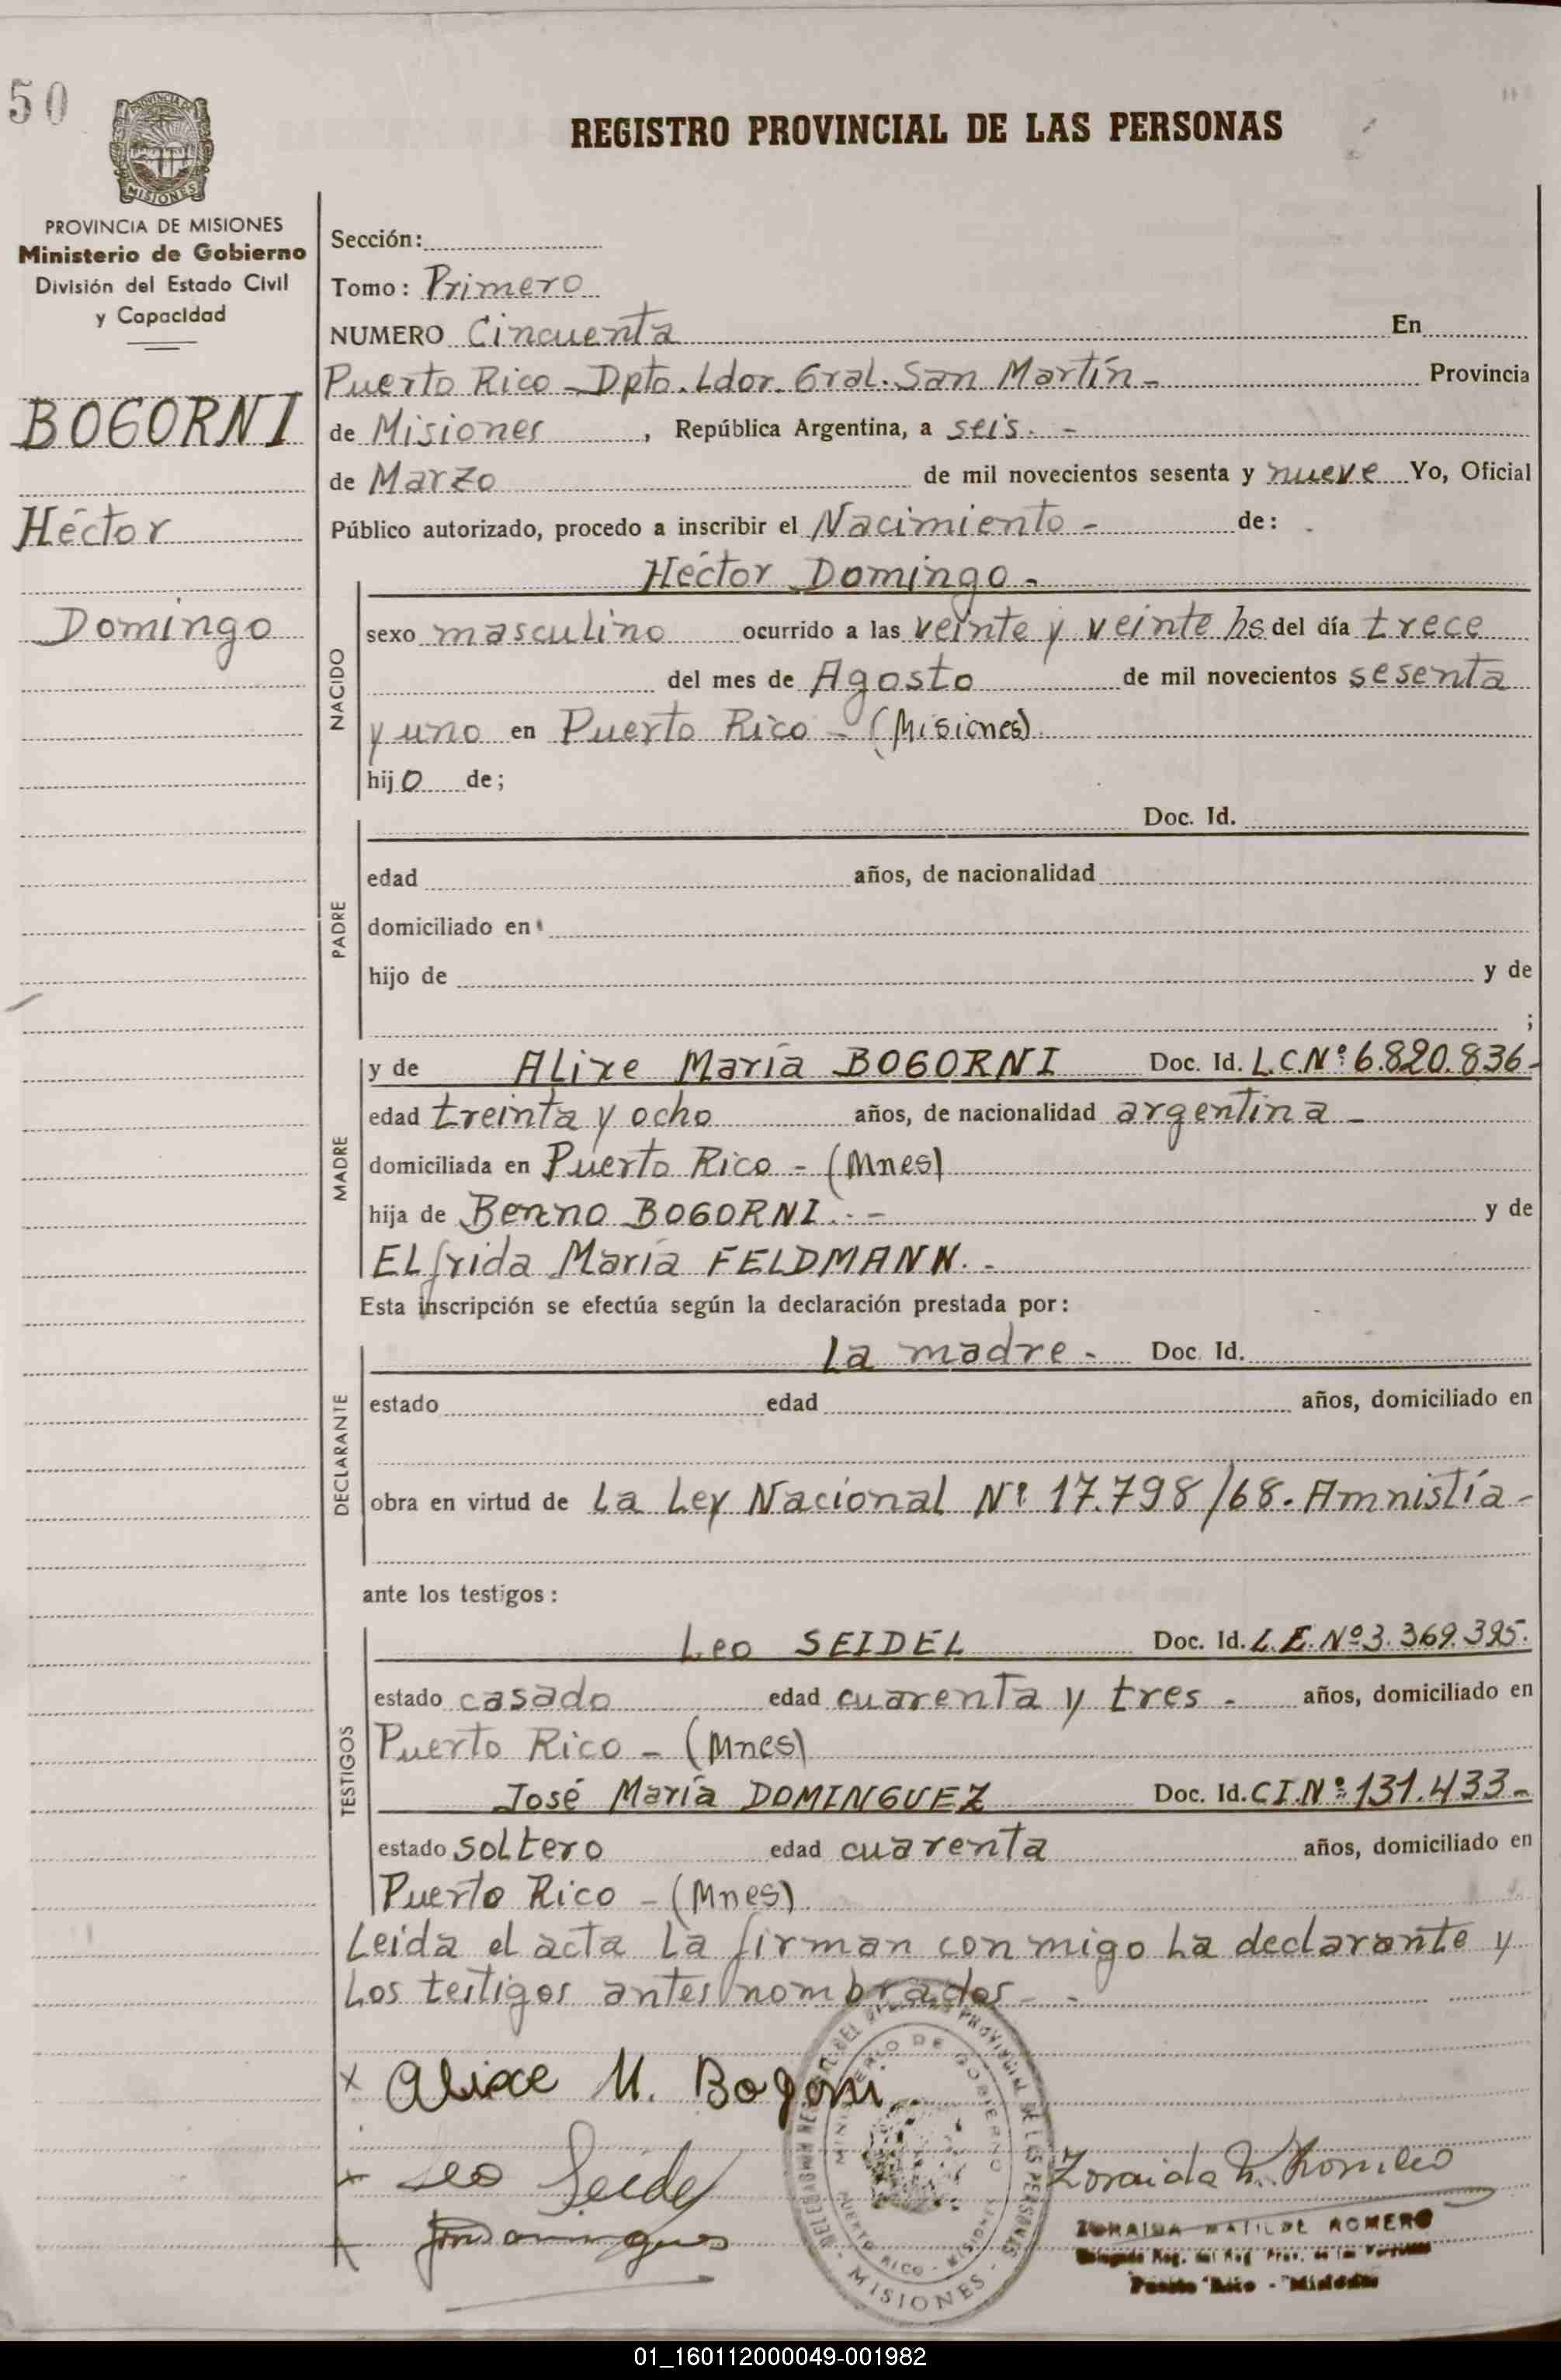 50
PROVINCIA DE MISIONES
REGISTRO PROVINCIAL DE LAS PERSONAS
PROVINCIA DE MISIONES
Ministerio de Gobierno
División del Estado Civil
y Capacidad
BOGORNI
Héctor
Domingo
Sección:
Tomo: Primero
NUMERO Cincuenta En
Puerto Rico - Dpto. Ldor. Gral. San Martín - Provincia
de Misiones , República Argentina, a seis. -
de Marzo de mil novecientos sesenta y nueve Yo, Oficial
Público autorizado, procedo a inscribir el Nacimiento - de:
Héctor Domingo -
NACIDO
sexo masculino ocurrido a las veinte y veinte hs del día trece
del mes de Agosto de mil novecientos sesenta
y uno en Puerto Rico - (Misiones)
hijo de;
PADRE
Doc. Id.
edad años, de nacionalidad
domiciliado en
hijo de y de
;
MADRE
y de Alixe María BOGORNI Doc. Id. L.C.Nº 6.820.836-
edad treinta y ocho años, de nacionalidad argentina -
domiciliada en Puerto Rico - (Mnes)
hija de Benno BOGORNI. - y de
Elfrida María FELDMANN. -
Esta inscripción se efectúa según la declaración prestada por:
DECLARANTE
la madre - Doc. Id.
estado edad años, domiciliado en
obra en virtud de la Ley Nacional Nº 17.798/68. Amnistía -
ante los testigos:
TESTIGOS
Leo SEIDEL Doc. Id. L.E. Nº 3.369.395.
estado casado edad cuarenta y tres - años, domiciliado en
Puerto Rico - (Mnes)
José María DOMINGUEZ Doc. Id. C.I.Nº 131.433-
estado soltero edad cuarenta años, domiciliado en
Puerto Rico - (Mnes)
Leída el acta la firman conmigo la declarante y
los testigos antes nombrados - -
x Alixe M. Bogorni
x Leo Seidel
x
MINISTERIO DE GOBIERNO
PUERTO RICO - MISIONES
- MISIONES -
Zoraida M. Romero
ZORAIDA MATILDE ROMERO
Puerto Rico - Misiones
01_160112000049-001982